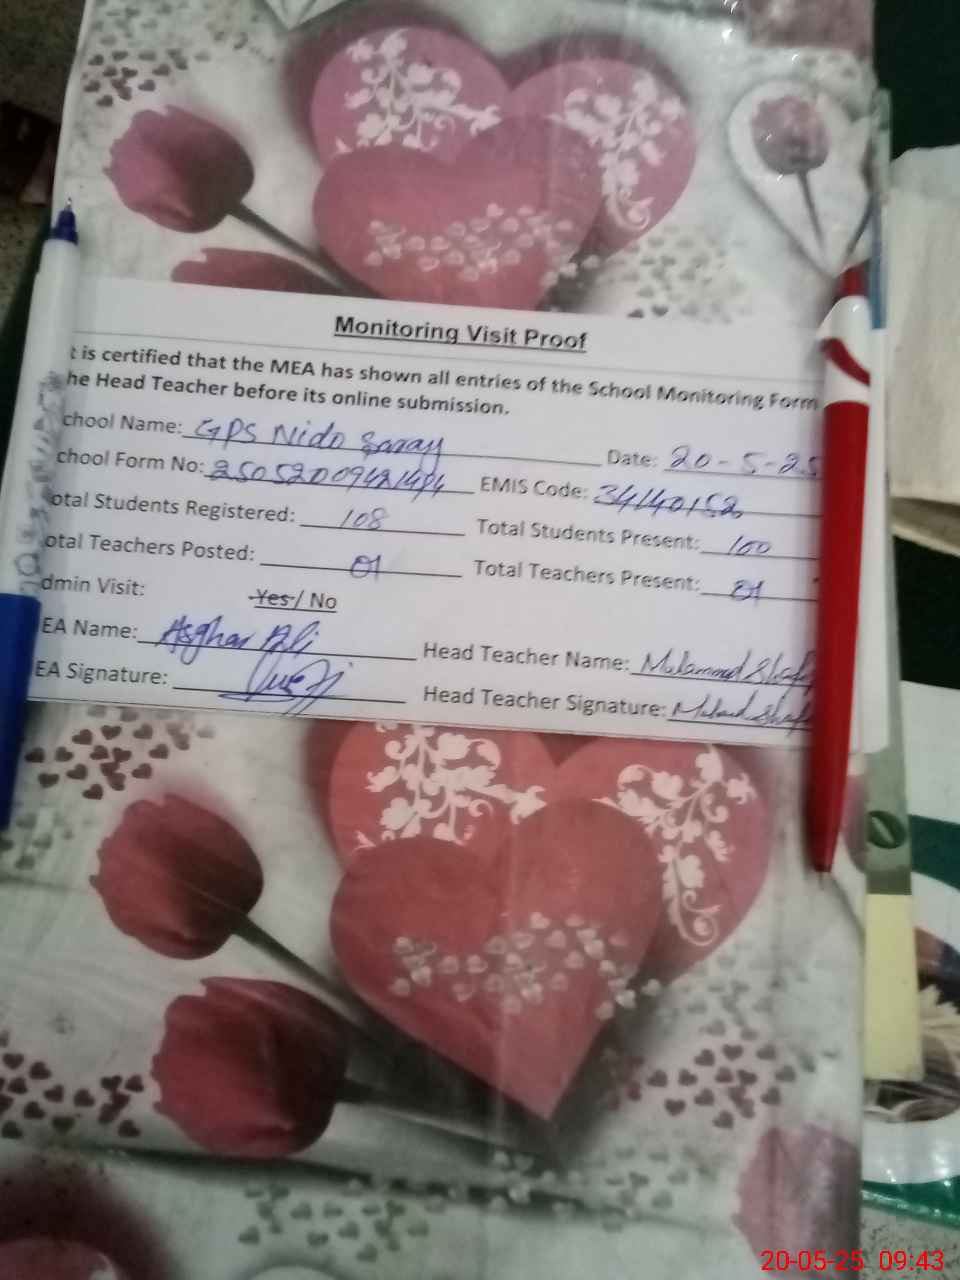 Monitoring Visit Proof
t is certified that the MEA has shown all entries of the School Monitoring Form
he Head Teacher before its online submission.
chool Name: GPS Nido Saray Date: 20-5-25
chool Form No: EMIS Code: 34140152
otal Students Registered: 108 Total Students Present: 100
otal Teachers Posted: 01 Total Teachers Present: 01
dmin Visit: Yes / No
EA Name: Asghar Ali Head Teacher Name: Mohammad Shaf
EA Signature: Head Teacher Signature:
20-05-25 09:43